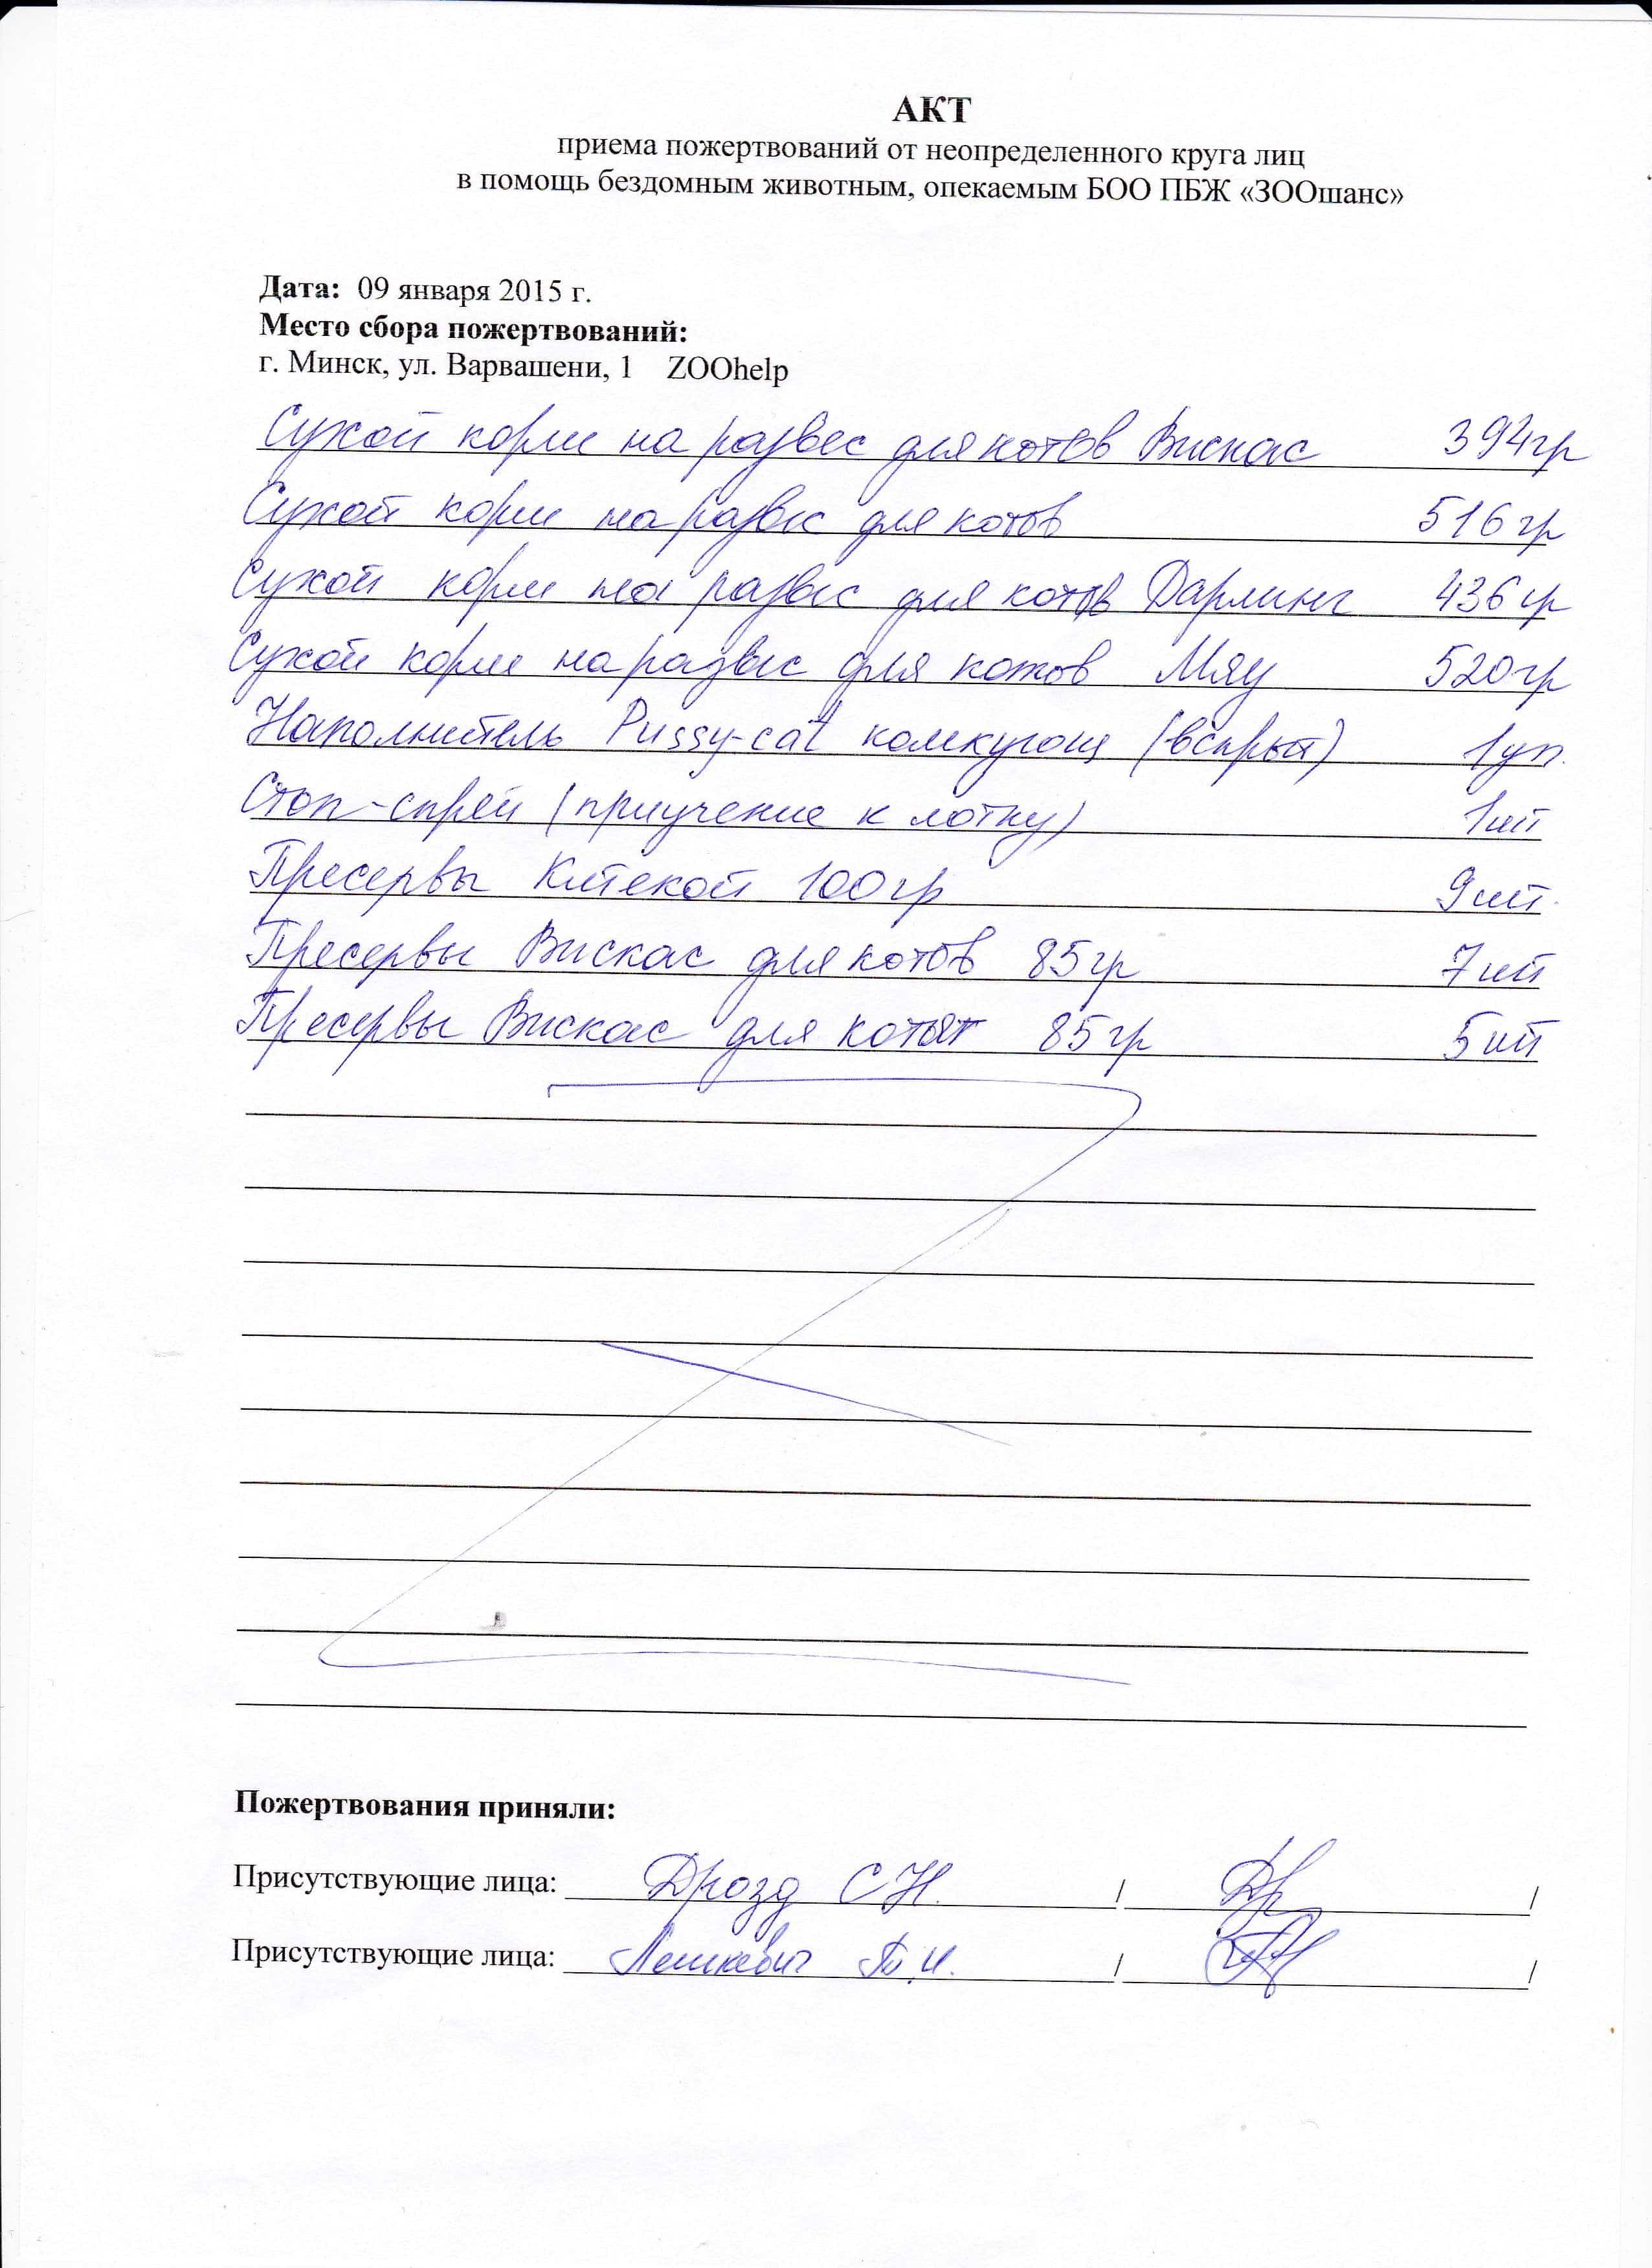 АКТ
приема пожертвований от неопределенного круга лиц
в помощь бездомным животным, опекаемым БОО ПБЖ «ЗООшанс»
Дата: 09 января 2015 г.
Место сбора пожертвований:
г. Минск, ул. Варвашени, 1 ZOOhelp
Сухой корм на развес для котов Вискас 394гр
Сухой корм на развес для котов 516гр
Сухой корм на развес для котов Дарлинг 436гр
Сухой корм на развес для котов Мяу 520гр
Наполнитель Pussy-cat комкующ (вскрыт) 1уп.
Стоп-спрей (приучение к лотку) 1шт
Пресервы Китекат 100гр 9шт.
Пресервы Вискас для котов 85гр 7шт
Пресервы Вискас для котят 85гр 5шт
Пожертвования приняли:
Присутствующие лица: Дрозд С Н. / /
Присутствующие лица: Лешкевич Т.И. / /